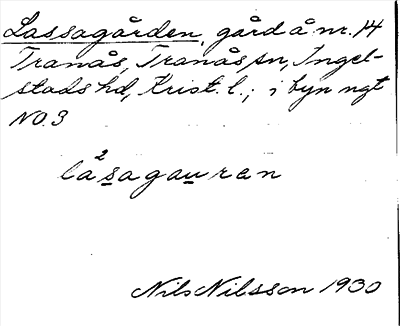 Lassagården, gård å nr. 14
Tranås, Tranås sn, Ingel-
stads hd, Krist. l.; i byn ngt
NO 3
lå²sagauran
Nils Nilsson 1930